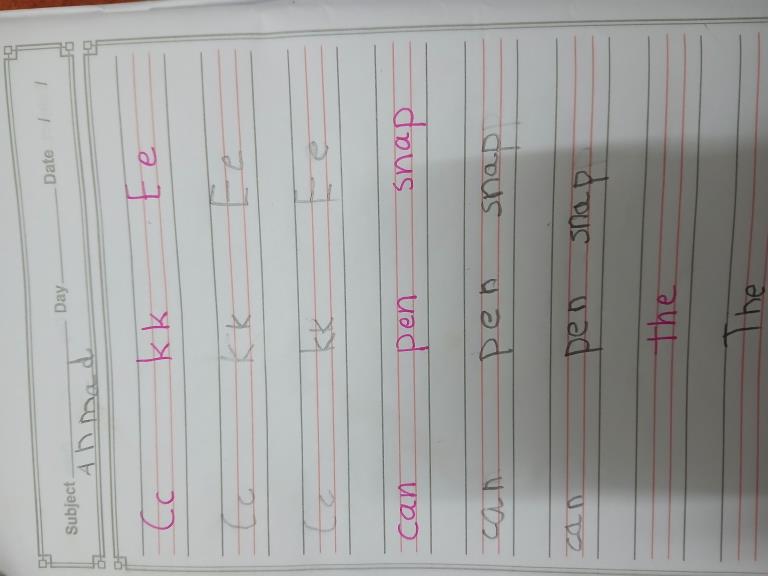 Subject Day Date / /
Ahmad
Cc kk Ee
Cc kk Ee
Cc kk Ee
can pen snap
can pen snap
can pen snap
the
The